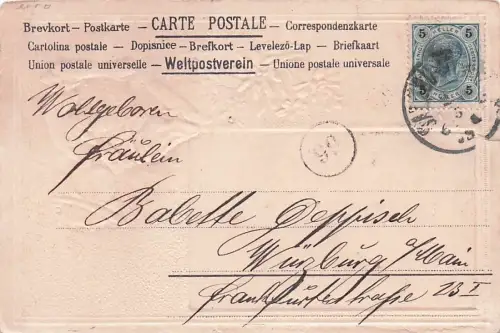 Brevkort - Postkarte - CARTE POSTALE - Correspondenzkarte
Cartolina postale - Dopisnice - Brefkort - Levelező-Lap - Briefkaart
Union postale universelle - Weltpostverein - Unione postale universale
5 5
HELLER
5 5
Wolgeboren
Fräulein
66
Babette Deppisch
Würzburg a/Main
Frankfurterstraße 23 I